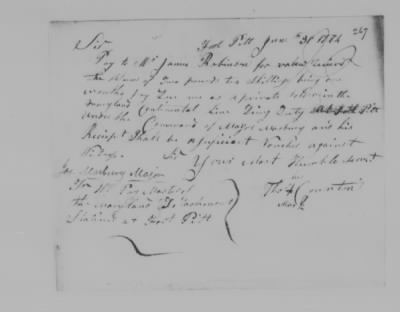 267
Sir Fort Pitt Jan. 31st 1784
Pay to Mr James Robinson for value Received
the Sum of Two pounds ten Shillings being one
months pay Due me as a private Soldier in the
Maryland Continental Line Doing Duty at Fort Pitt
under the Command of Major Marbury and his
Receipt Shall be a Sufficient Voucher against
Sir Your Most Humble Servt
Jos. Marbury Major
To Mr Pay Master of
the Maryland Detachment
Station'd at Fort Pitt
Thos
Mark